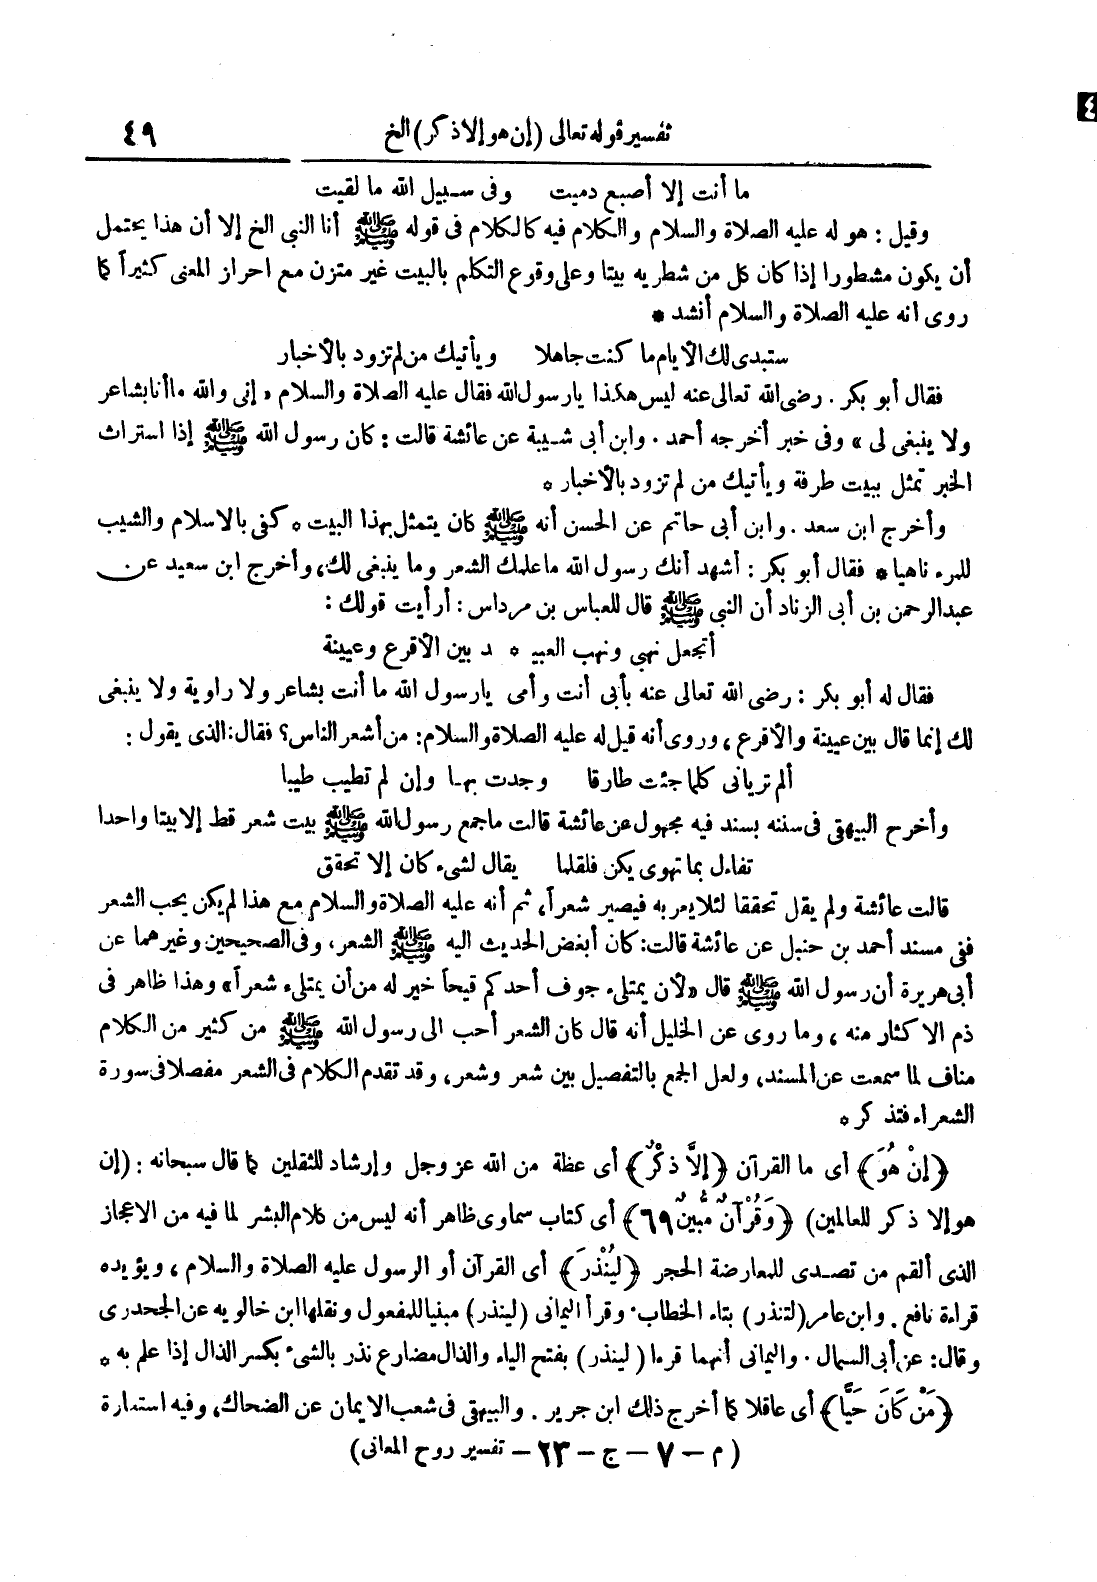 ٤
تفسير قوله تعالى (إن هو إلا ذكر) الخ ٤٩
ما أنت إلا أصبع دميت وفى سبيل الله ما لقيت
وقيل : هو له عليه الصلاة والسلام والكلام فيه كالكلام فى قوله ﷺ أنا النبى الخ إلا أن هذا يحتمل
أن يكون مشطورا إذا كان كل من شطريه بيتا وعلى وقوع التكلم بالبيت غير متزن مع احراز المعنى كثيراً كما
روى انه عليه الصلاة والسلام أنشد *
ستبدى لك الأيام ما كنت جاهلا ويأتيك من لم تزود بالأخبار
فقال أبو بكر . رضى الله تعالى عنه ليس هكذا يارسول الله فقال عليه الصلاة والسلام « إنى والله ما أنا بشاعر
ولا ينبغى لى » وفى خبر أخرجه أحمد . وابن أبى شيبة عن عائشة قالت : كان رسول الله ﷺ إذا استراث
الخبر تمثل ببيت طرفة ويأتيك من لم تزود بالأخبار *
وأخرج ابن سعد . وابن أبى حاتم عن الحسن أنه ﷺ كان يتمثل بهذا البيت * كفى بالاسلام والشيب
للمرء ناهيا * فقال أبو بكر : أشهد أنك رسول الله ما علمك الشعر وما ينبغى لك، وأخرج ابن سعيد عن
عبدالرحمن بن أبى الزناد أن النبى ﷺ قال للعباس بن مرداس : أرأيت قولك :
أتجعل نهبى ونهب العبيـ * ـد بين الأقرع وعيينة
فقال له أبو بكر : رضى الله تعالى عنه بأبى أنت وأمى يارسول الله ما أنت بشاعر ولا راوية ولا ينبغى
لك إنما قال بين عيينة والأقرع، وروى أنه قيل له عليه الصلاة والسلام: من أشعر الناس؟ فقال: الذى يقول :
ألم ترياني كلما جئت طارقا وجدت بها وإن لم تطيب طيبا
وأخرج البيهقى فى سننه بسند فيه مجهول عن عائشة قالت ماجمع رسول الله ﷺ بيت شعر قط إلا بيتا واحدا
تفاءل بما تهوى يكن فلقلما يقال لشىء كان إلا تحقق
قالت عائشة ولم يقل تحققا لئلا يعربه فيصير شعراً، ثم أنه عليه الصلاة والسلام مع هذا لم يكن يحب الشعر
ففى مسند أحمد بن حنبل عن عائشة قالت: كان أبغض الحديث اليه ﷺ الشعر، وفى الصحيحين وغيرهما عن
أبى هريرة أن رسول الله ﷺ قال «لأن يمتلىء جوف أحدكم قيحاً خير له من أن يمتلىء شعراً» وهذا ظاهر فى
ذم الاكثار منه ، وما روى عن الخليل أنه قال كان الشعر أحب الى رسول الله ﷺ من كثير من الكلام
مناف لما سمعت عن المسند، ولعل الجمع بالتفصيل بين شعر وشعر، وقد تقدم الكلام فى الشعر مفصلا فى سورة
الشعراء فتذكر *
﴿إِنْ هُوَ﴾ أى ما القرآن ﴿إِلَّا ذِكْرٌ﴾ أى عظة من الله عز وجل وإرشاد للثقلين كما قال سبحانه : (إن
هو إلا ذكر للعالمين) ﴿وَقُرْآنٌ مُّبِينٌ ٦٩﴾ أى كتاب سماوى ظاهر أنه ليس من كلام البشر لما فيه من الاعجاز
الذى ألقم من تصدى للمعارضة الحجر ﴿لِيُنْذِرَ﴾ أى القرآن أو الرسول عليه الصلاة والسلام ، ويؤيده
قراءة نافع . وابن عامر (لتنذر) بتاء الخطاب. وقرأ اليمانى (لينذر) مبنيا للمفعول ونقلها ابن خالويه عن الجحدرى
وقال: عن أبى السمال . واليمانى أنهما قرءا ( لينذر) بفتح الياء والذال مضارع نذر بالشىء بكسر الذال إذا علم به *
﴿مَنْ كَانَ حَيًّا﴾ أى عاقلا كما أخرج ذلك ابن جرير . والبيهقى فى شعب الايمان عن الضحاك، وفيه استعارة
(م - ٧ - ج - ٢٣ - تفسير روح المعانى)